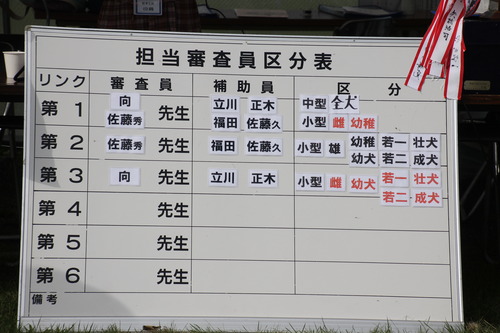 担当審査員区分表
リンク 審査員 補助員 区分
第1 向 先生 立川 正木 中型 全犬
佐藤秀 福田 佐藤久 小型 雌 幼稚
第2 佐藤秀 先生 福田 佐藤久 小型 雄 幼稚 若一 壮犬
幼犬 若二 成犬
第3 向 先生 立川 正木 小型 雌 幼犬 若一 壮犬
若二 成犬
第4 先生
第5 先生
第6 先生
備考